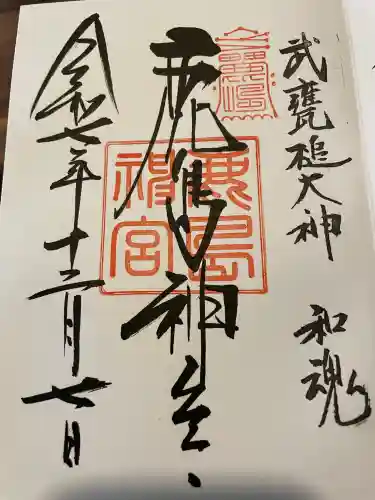 武甕槌大神 和魂
鹿島神宮
鹿島神宮
令和七年十二月七日